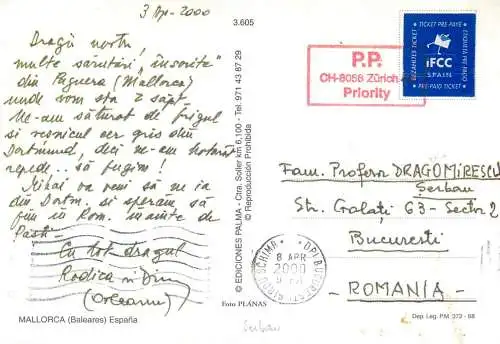 3 Apr - 2000
Dragii noștri!
multe sărutări, "însorite"
din Paguera (Mallorca)
unde vom sta 2 săpt.
Ne-am săturat de frigul
și veșnicul cer gris din
Dortmund, deci ne-am hotărât
repede.. să fugim!
Mihai va veni să ne ia
din Dortm. și sperăm să
fim în Rom. înainte de
Paști -
Cu tot dragul
Rodica și Dinu
(Orleanu)
MALLORCA (Baleares) España
Foto PLANAS
3.605
© EDICIONES PALMA - Ctra. Soller km 6,100 - Tel. 971 43 87 29
© Reproducción Prohibida
P.P.
CH-8058 Zürich
Priority
TICKET PRE-PAYE
BEZAHLTES TICKET
ETIQUETA PRE PAGO
iFCC
SPAIN
PRE-PAID TICKET
Fam. Profesor DRAGOMIRESCU
Șerban
Str. Galați 63 - Sector 2
București
- ROMANIA -
8 APR
2000
Dep. Leg. PM 372 - 98
Șerban